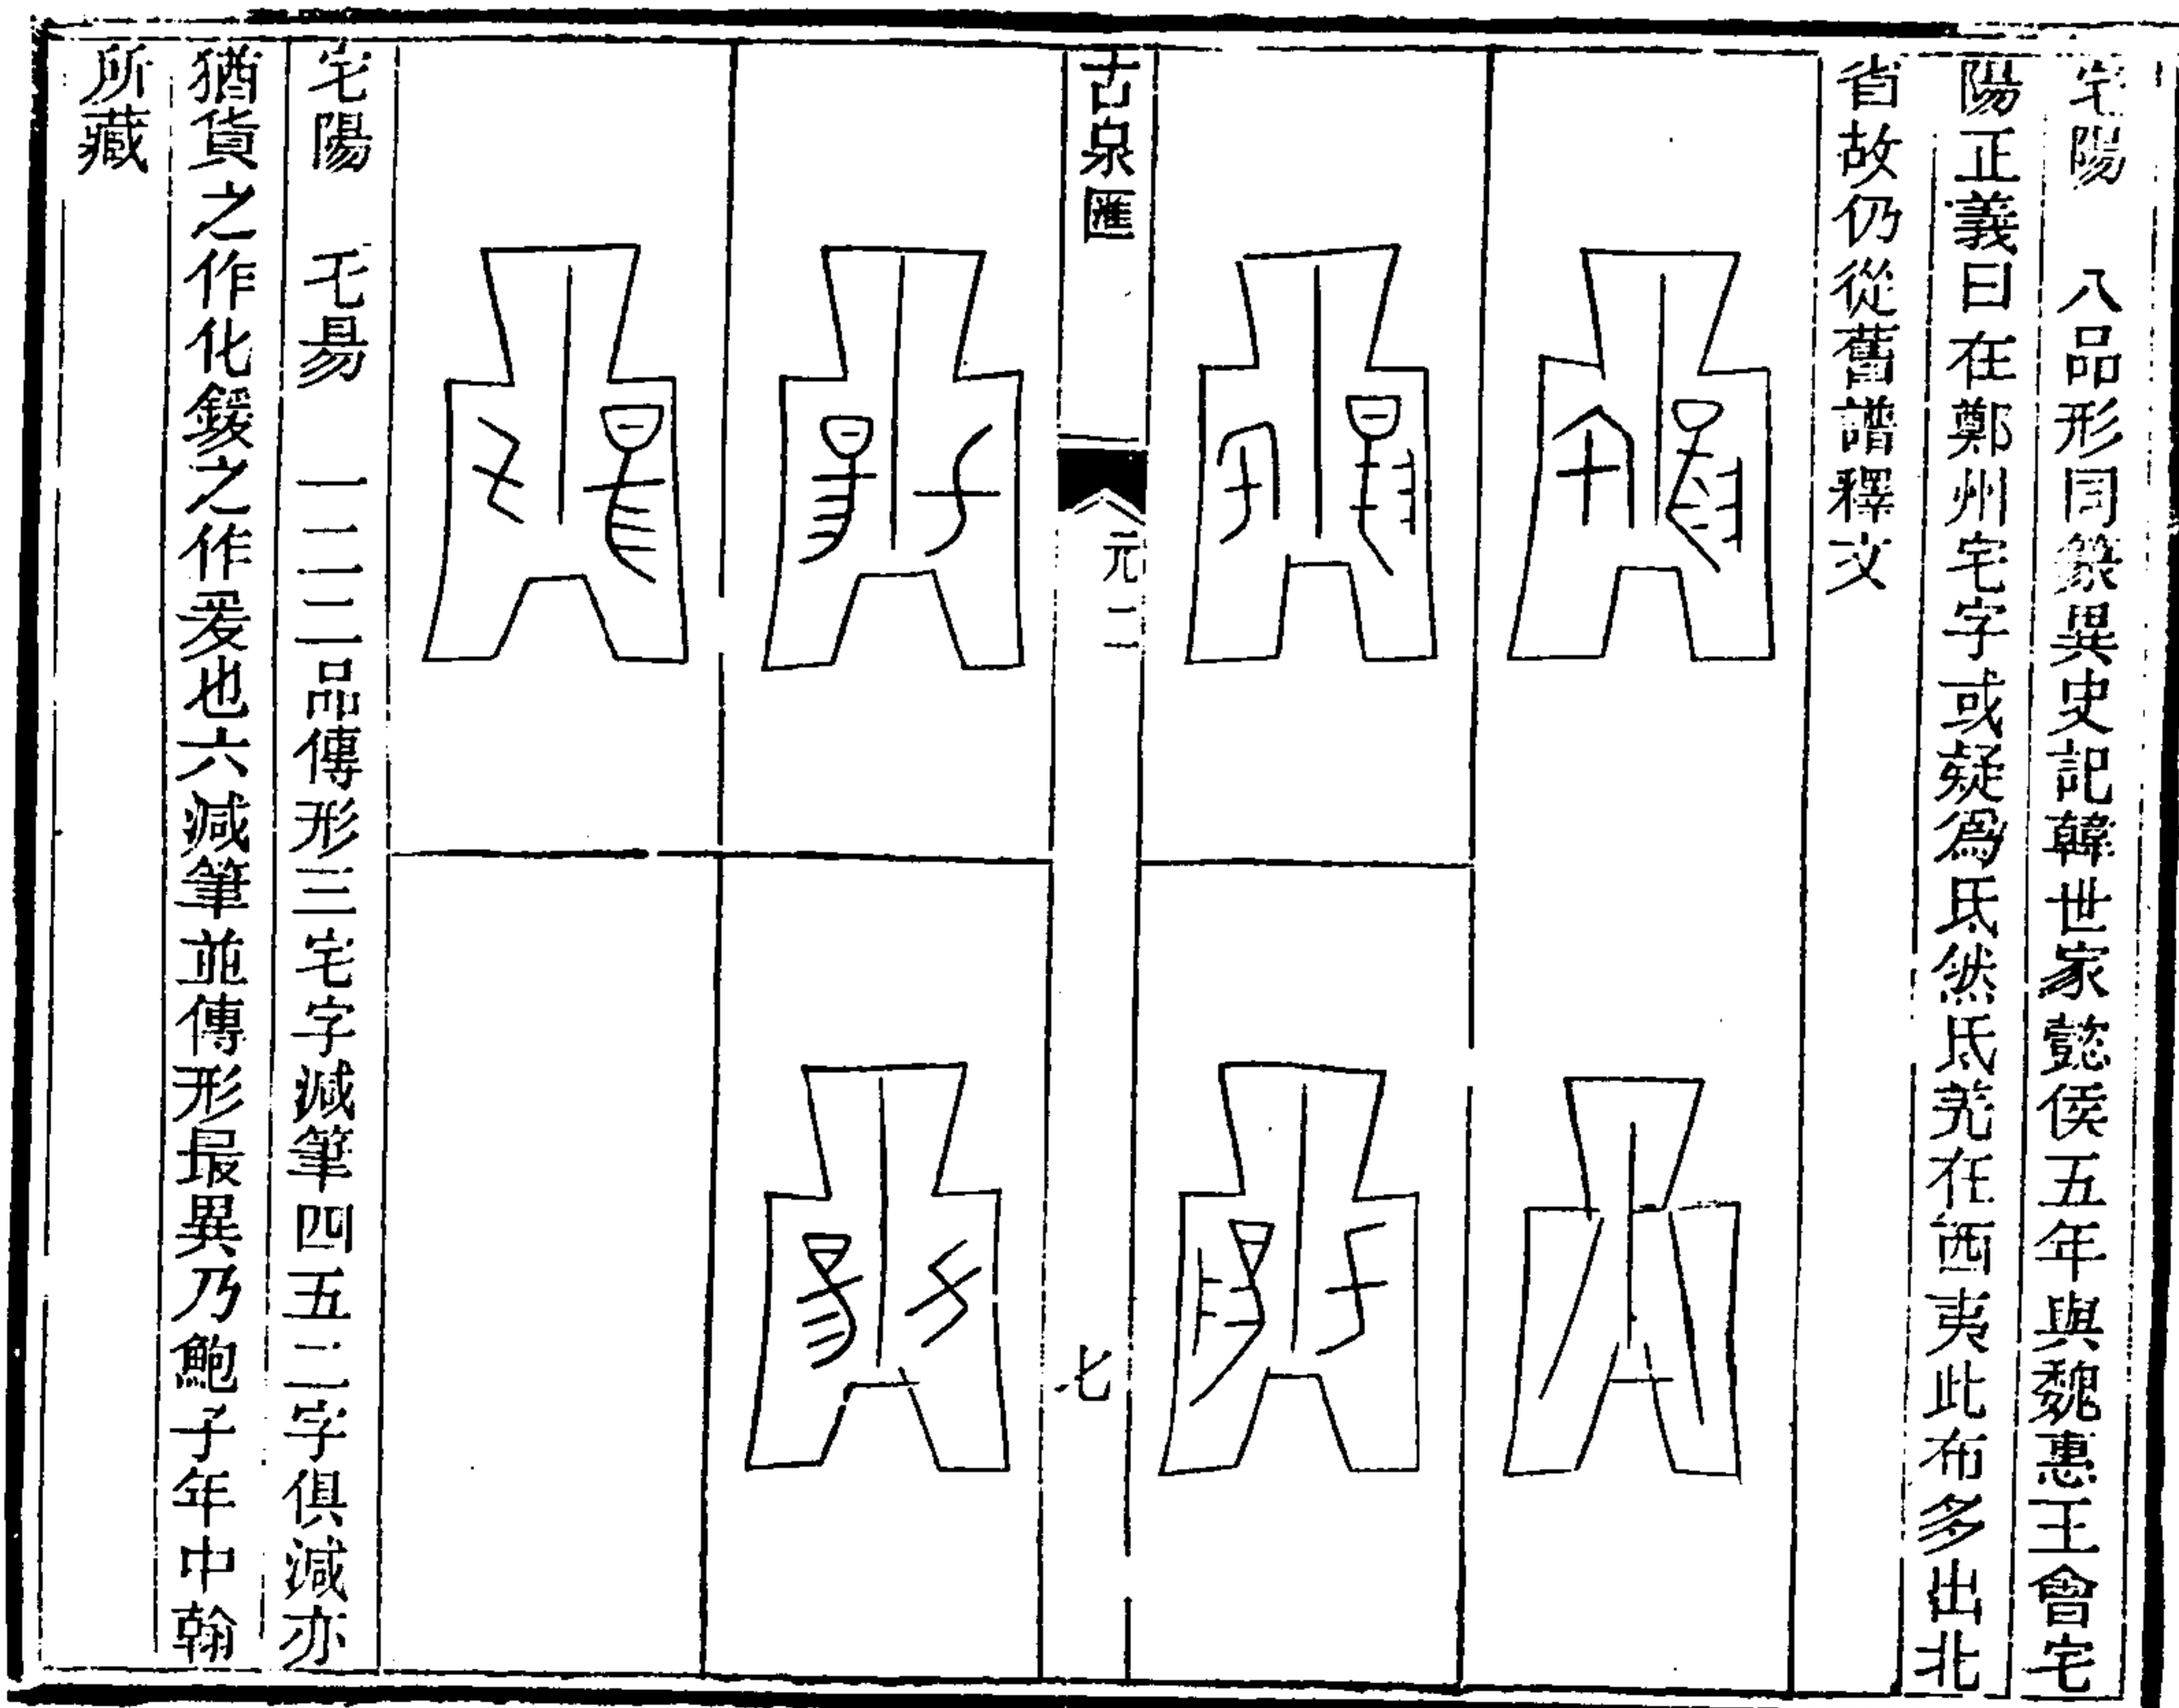 宅陽　八品形同篆異史記韓世家懿侯五年與魏惠王會宅
陽正義曰在鄭州宅字或疑爲氐然氐羌在西夷此布多出北
省故仍從舊譜釋文
古泉匯
元二
七
宅陽　乇昜　一二二二品傳形三宅字減筆四五二字俱減亦
猶貨之作化鍰之作爰也六減筆並傳形最異乃鮑子年中翰
所藏